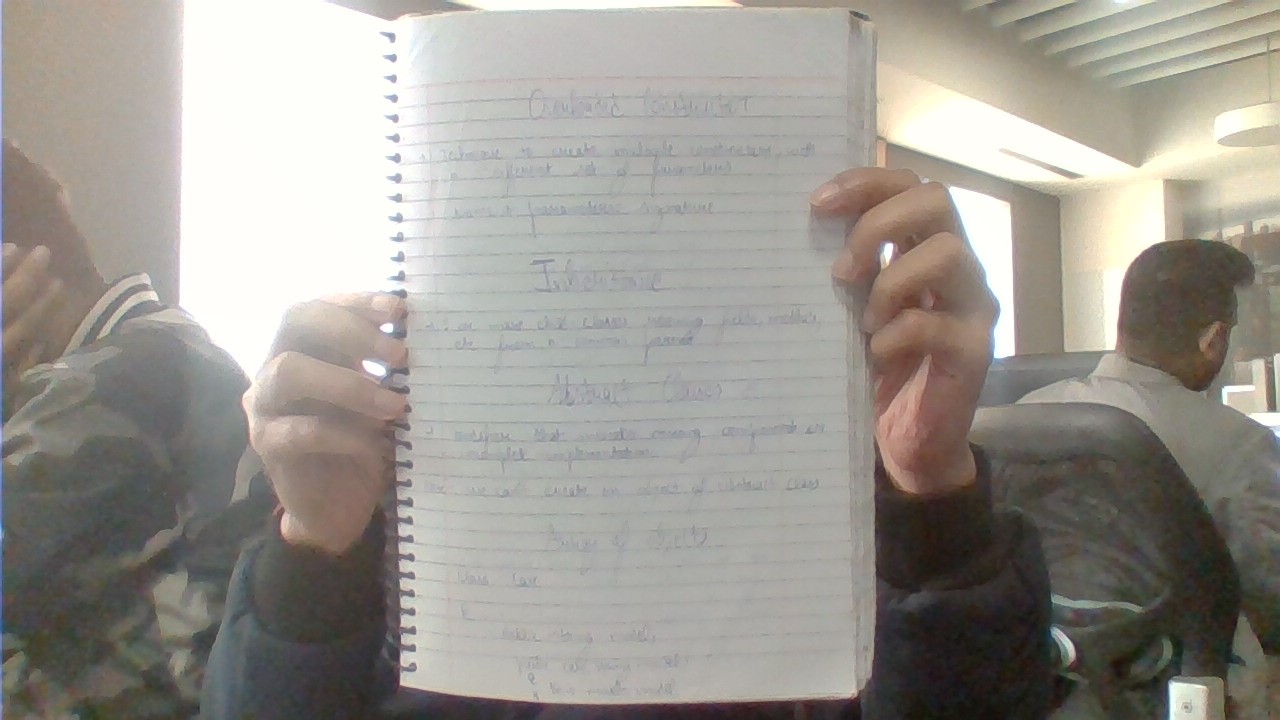 Overloaded Constructor
technique to create multiple constructors, with
a different set of parameters
name & parameters signature
Inheritance
or more child classes recieving fields, methods
etc from a common parent
Abstract Classes
missing components or
incomplete implementation
we can't create an object of abstract class
Array of Objects
class Car
{
public string model;
public Car(string model)
{ this.model = model